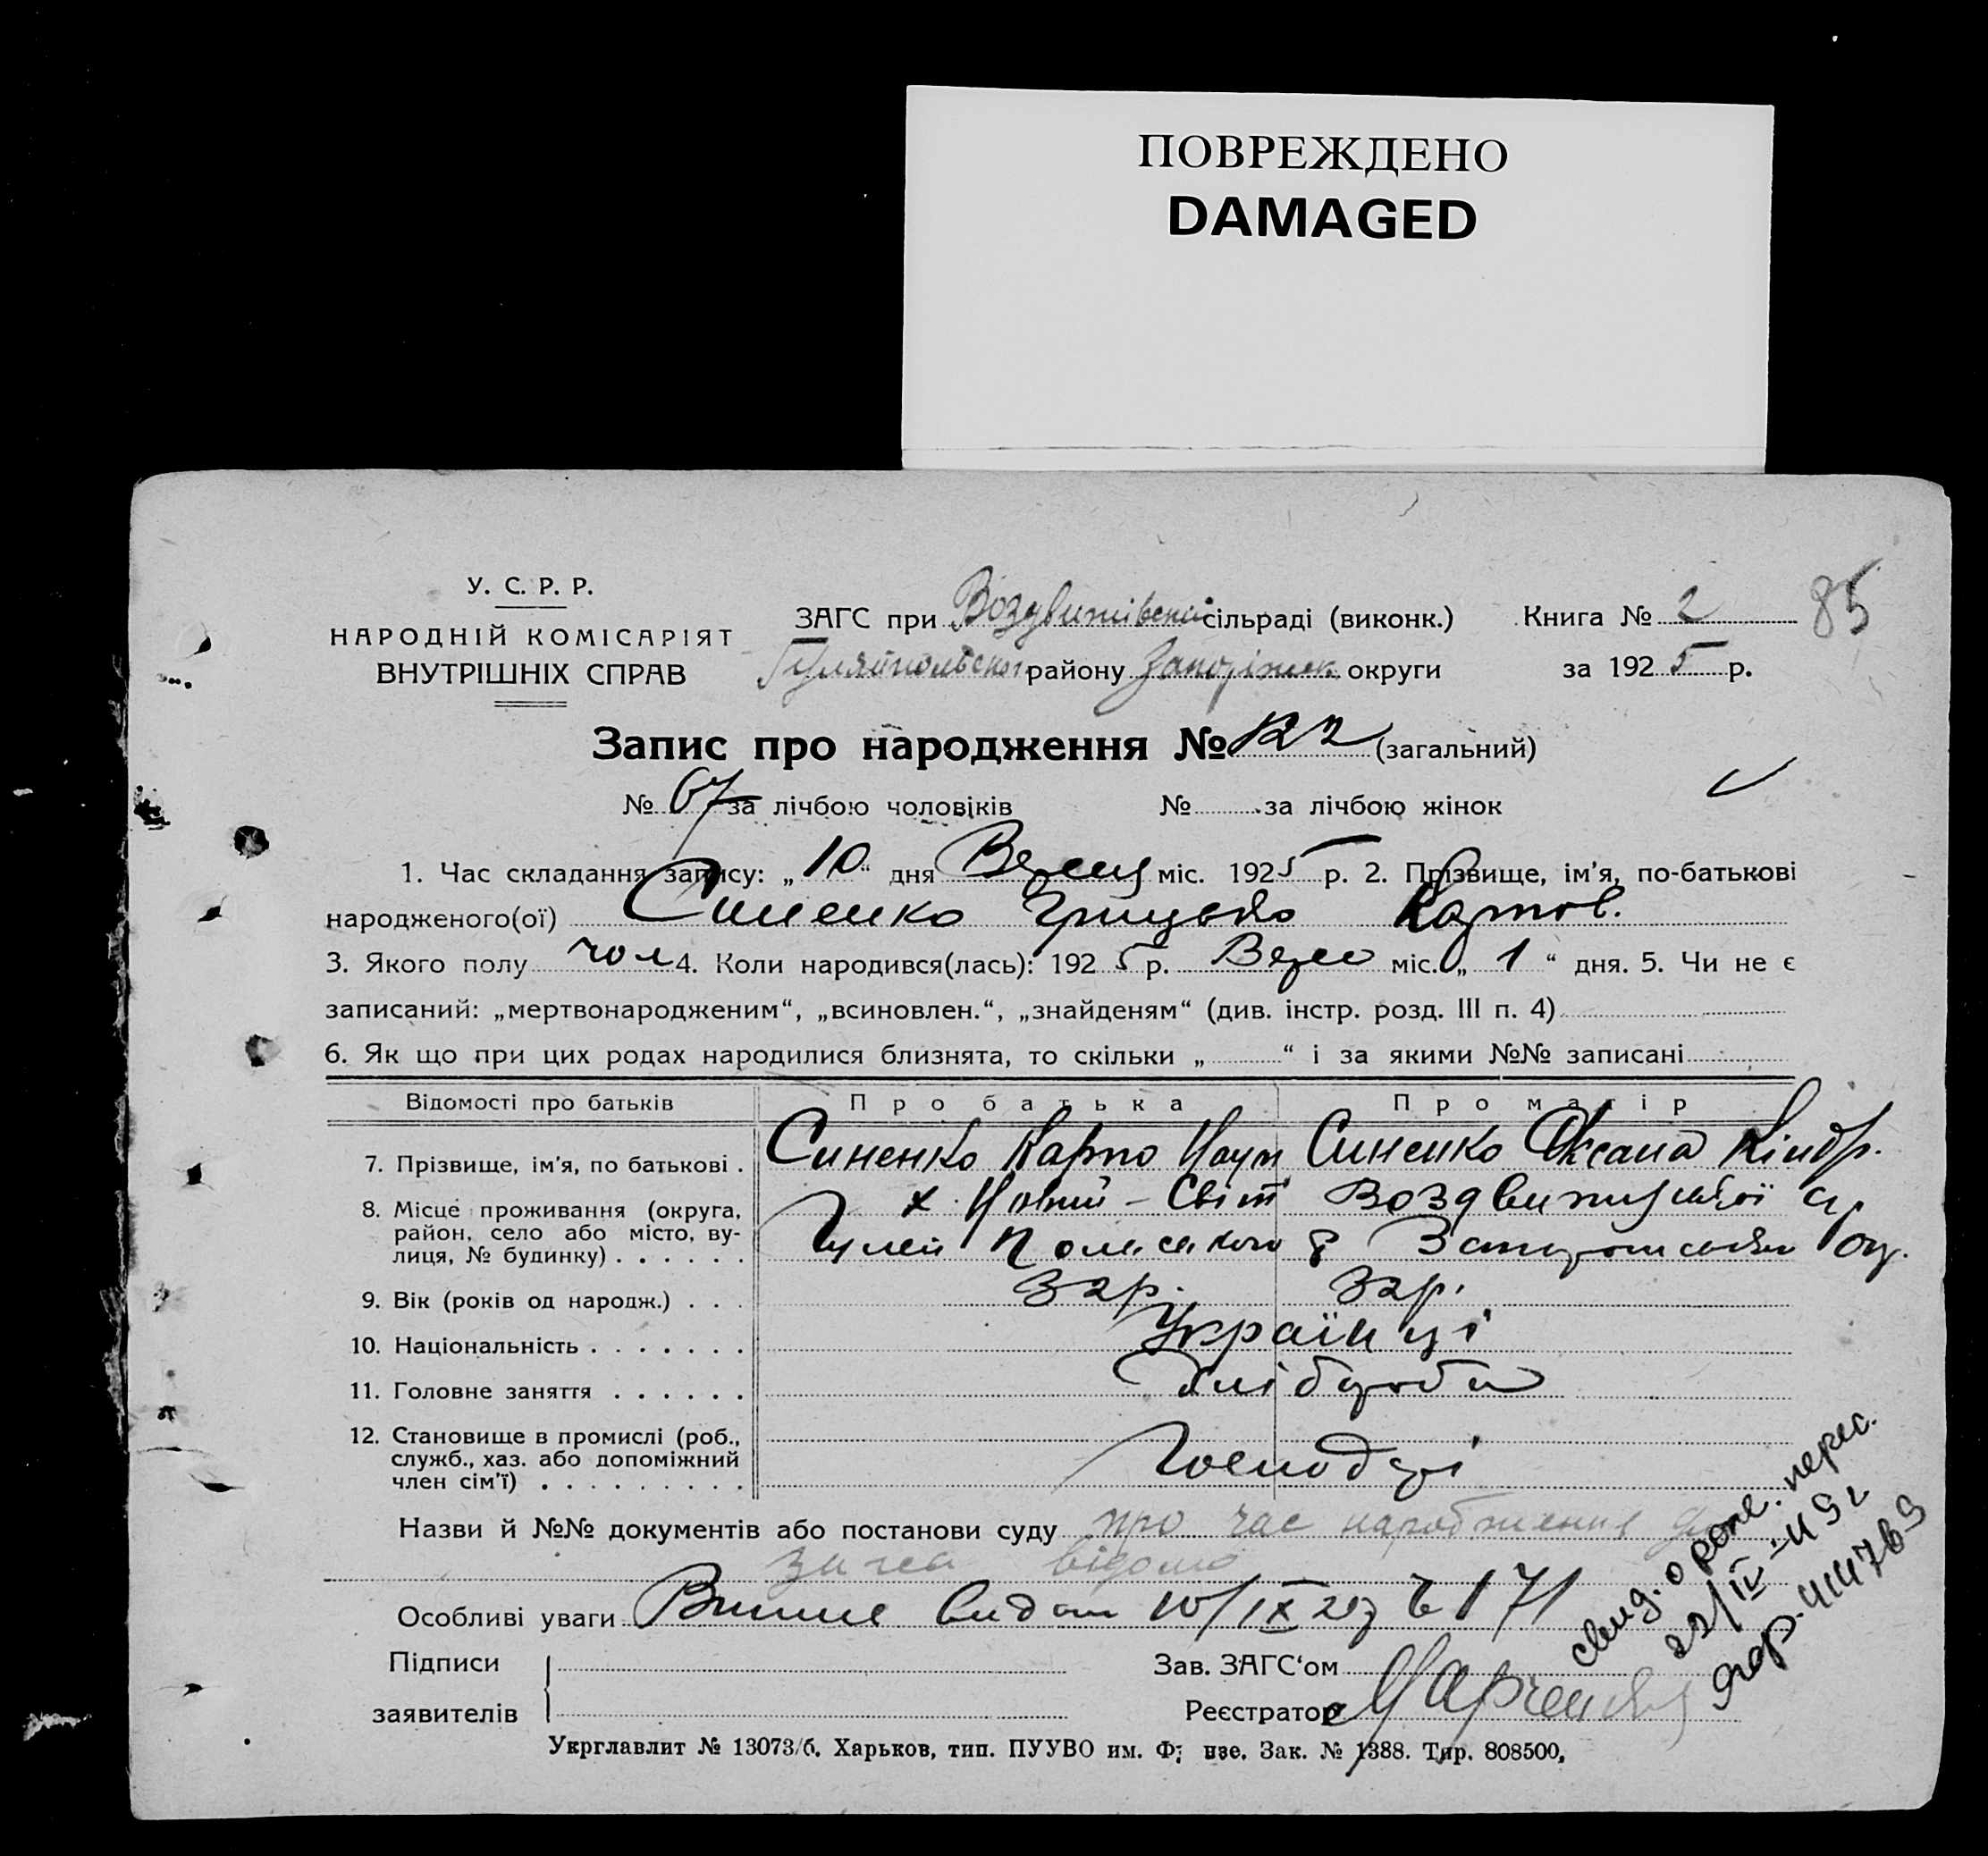 ПОВРЕЖДЕНО
DAMAGED
85
У. С. Р. Р.
НАРОДНІЙ КОМІСАРІЯТ
ВНУТРІШНІХ СПРАВ
ЗАГС при Воздвижівськ сільраді (виконк.) Книга № 2
Гуляйпольского району Запоріжск. округи за 1925 р.
Запис про народження № 122 (загальний)
№ 67 за лічбою чоловіків № за лічбою жінок
1. Час складання запису: „10“ дня Вересня міс. 1925 р. 2. Прізвище, ім'я, по-батькові
народженого(ої) Синенко Грицько Карпов.
3. Якого полу чол 4. Коли народився(лась): 1925 р. Верес міс. „1“ дня. 5. Чи не є
записаний: „мертвонародженим“, „всиновлен.“, „знайденям“ (див. інстр. розд. III п. 4)
6. Як що при цих родах народилися близнята, то скільки „ “ і за якими №№ записані
Відомості про батьків Про батька Про матір
7. Прізвище, ім'я, по батькові . Синенко Карпо Наум Синенко Оксана Кіндр.
8. Місце проживання (округа, район, село або місто, вулиця, № будинку) . . . . . . х. Новий-Світ Воздвижуської с/р
Гуляй Польського р Запорожської ок.
9. Вік (років од народж.) . . . 32 р. 32 р.
10. Національність . . . . . . . Українці
11. Головне заняття . . . . . . Хлібороби
12. Становище в промислі (роб., служб., хаз. або допоміжний член сім'ї) . . . . . . . . . Господарі
Назви й №№ документів або постанови суду про час народження
відомо
Особливі уваги Виписе видан 10/IX 25р № 171
Підписи
заявителів
Зав. ЗАГС'ом
Реєстратор Марченко
свид. о рожд. перес.
22/IV-49 г
Укрглавлит № 13073/б. Харьков, тип. ПУУВО им. Ф нзе. Зак. № 1388. Тир. 808500,